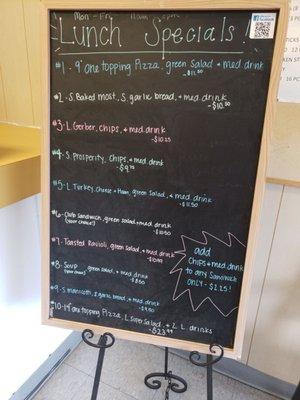 Mon - Fri
Lunch Specials!
#1 - 9" one topping Pizza, green Salad + med drink
- $11.50
#2 - S. Baked most, S. garlic bread, + med drink
- $10.50
#3 - L. Gerber, chips, + med drink
- $10.25
#4 - S. Prosperity, chips, + med drink
- $9.75
#5 - L. Turkey, Cheese + Ham, green Salad, + med drink
- $11.50
#6 - Club Sandwich, green salad + med drink
(your choice!)
- $10.50
#7 - Toasted Ravioli, green Salad, + med drink
- $10.50
#8 - Soup green salad, + med drink
#9 - S. manicotti, S. garlic bread, + med drink
- $9.50
#10 - 14" one topping Pizza, L. Super Salad, + 2 L drinks
- $23.99
add
CHIPS + med drink
to any Sandwich
ONLY - $2.25!